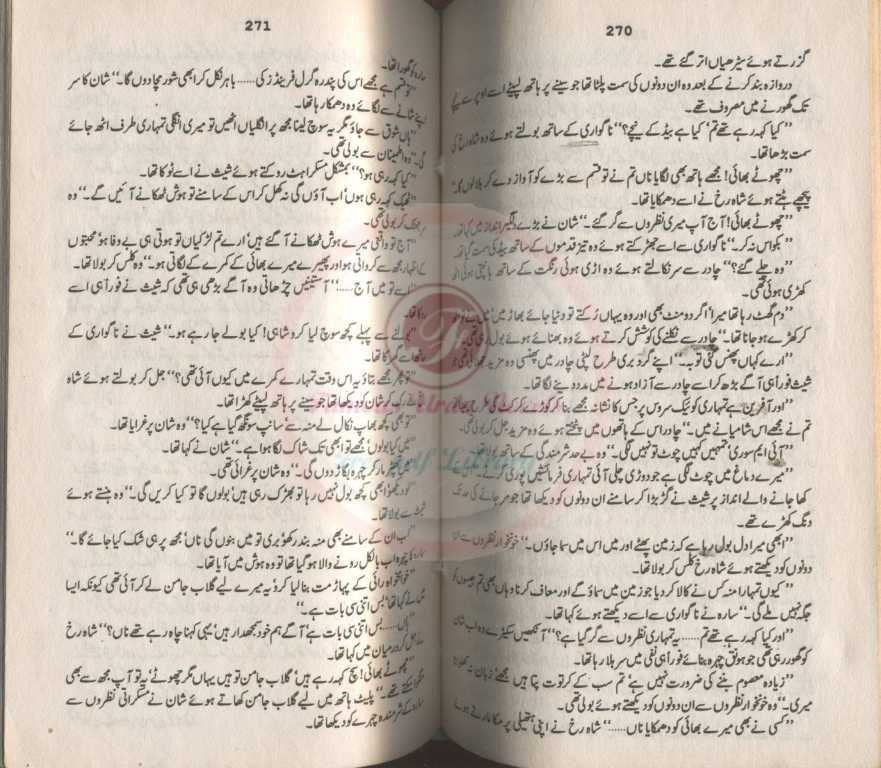 270
گزرتے ہوئے سیڑھیاں اتر گئے تھے۔
دروازہ بند کرنے کے بعد وہ ان دونوں کی سمت پلٹا تھا جو سینے پر ہاتھ لپیٹے اسے اوپر سے نیچے
تک گھورنے میں مصروف تھے۔
”کیا کہہ رہے تھے تم‘ کیا ہے بیڈ کے نیچے؟“ ناگواری کے ساتھ بولتے ہوئے وہ شاہ رخ کی
سمت بڑھا تھا۔
”چھوٹے بھائی! مجھے ہاتھ بھی لگایا ناں تم نے تو قسم سے بڑے کو آواز دے کر بلا لوں گا۔“
پیچھے ہٹتے ہوئے شاہ رخ نے اسے دھمکایا تھا۔
”چھوٹے بھائی! آج آپ میری نظروں سے گر گئے۔“ شان نے بڑے دلگیر انداز میں کہا تھا۔
”بکواس نہ کر۔“ ناگواری سے اسے جھڑکتے ہوئے وہ تیز قدموں کے ساتھ بیڈ کی سمت گیا تھا۔
”وہ چلے گئے؟“ چادر سے سر نکالتے ہوئے وہ اڑی ہوئی رنگت کے ساتھ ہانپتی ہوئی اٹھ
کھڑی ہوئی تھی۔
”دم گھٹ رہا تھا میرا‘ اگر دو منٹ بھی اور وہ یہاں رکتے تو دنیا جائے بھاڑ میں میں نے
کر کھڑے ہو جانا تھا۔“ چادر سے نکلنے کی کوشش کرتے ہوئے وہ بھنائے ہوئے بول رہی تھی۔
”ارے کہاں پھنس گئی تو یہ۔“ اپنے گرد بری طرح لپٹی چادر میں پھنسی وہ مزید
شیث فوراً ہی آگے بڑھ کر اسے چادر سے آزاد ہونے میں مدد دینے لگا تھا۔
”اور آفرین ہے تمہاری کوئیک سروس پر جس کا نشانہ مجھے بنا کر کوڑے کرکٹ کی طرح
تم نے مجھے اس شامیانے میں۔“ چادر اس کے ہاتھوں میں پٹختے ہوئے وہ مزید جل کر بولی تھی۔
”آئی ایم سوری‘ تمہیں کہیں چوٹ تو نہیں لگی۔“ وہ بے حد شرمندگی سے بولا تھا۔
”میرے دماغ میں چوٹ لگی ہے جو دوڑی چلی آئی تمہاری فرمائشیں پوری کرنے۔“
کھا جانے والے انداز پر شیث نے گڑبڑا کر سامنے ان دونوں کو دیکھا تھا جو مر جانے کی حد تک
دنگ کھڑے تھے۔
”ابھی میرا دل بول رہا ہے کہ زمین پھٹے اور میں اس میں سما جاؤں۔“ خونخوار نظروں سے ان
دونوں کو دیکھتے ہوئے شاہ رخ کلس کر بولا تھا۔
”کیوں تمہارا منہ کس نے کالا کر دیا جو زمین میں سماؤ گے اور معاف کرنا وہاں بھی تم جیسوں کو
جگہ نہیں ملے گی۔“ سارہ نے ناگواری سے اسے دیکھتے ہوئے کہا تھا۔
”اور کیا کہہ رہے تھے تم..... یہ تمہاری نظروں سے گر گیا ہے؟“ آنکھیں سکیڑے وہ اب شان
کو گھور رہی تھی جو ہونق چہرہ بنائے فوراً ہی نفی میں سر ہلا رہا تھا۔
”زیادہ معصوم بننے کی ضرورت نہیں ہے‘ تم سب کے کرتوت پتا ہیں مجھے‘ زبان نہ کھلوانا
میری۔“ وہ خونخوار نظروں سے ان دونوں کو دیکھتے ہوئے بولی تھی۔
”کسی نے بھی میرے بھائی کو دھمکایا ناں......“ شاہ رخ نے اپنی ہتھیلی پر مکا مارتے ہوئے
271
سارہ کو گھورا تھا۔
”تو قسم ہے مجھے اس کی پندرہ گرل فرینڈز کی...... باہر نکل کر ابھی شور مچا دوں گا۔“ شان کا سر
اپنے شانے سے لگائے وہ دھمکا رہا تھا۔
”ہاں شوق سے جاؤ مگر یہ سوچ لینا مجھ پر انگلیاں اٹھیں تو میری انگلی تمہاری طرف اٹھ جائے
گی۔“ وہ اطمینان سے بولی تھی۔
”کیا کہہ رہی ہو؟“ بمشکل مسکراہٹ روکتے ہوئے شیث نے اسے ٹوکا تھا۔
”ٹھیک کہہ رہی ہوں‘ اب آؤں گی نہ کھل کر اس کے سامنے تو ہوش ٹھکانے آئیں گے۔“ وہ
سر جھٹک کر بولی تھی۔
”آج تو واقعی میرے ہوش ٹھکانے آ گئے ہیں‘ ارے تم لڑکیاں تو ہوتی ہی بے وفا ہو‘ محبتوں
کے اظہار مجھ سے کرواتی ہو اور پھیرے میرے بھائی کے کمرے کے لگاتی ہو۔“ وہ کلس کر بولا تھا۔
تو میں آج......“ آستینیں چڑھاتی وہ آگے بڑھی ہی تھی کہ شیث نے فوراً ہی اسے
روکا تھا۔
”بولنے سے پہلے کچھ سوچ لیا کرو شاہی! کیا بولے جا رہے ہو۔“ شیث نے ناگواری کے
ساتھ اسے گھرکا تھا۔
”تو پھر مجھے بتاؤ یہ اس وقت تمہارے کمرے میں کیوں آئی تھی؟“ جل کر بولتے ہوئے شاہ
رخ نے رک کر شان کو دیکھا تھا جو سینے پر ہاتھ لپیٹے کھڑا تھا۔
”تو بھی کچھ بھاپ نکال لے منہ سے‘ سانپ سونگھ گیا ہے کیا؟“ وہ شان پر غرایا تھا۔
”میں کیا بولوں‘ مجھے تو ابھی تک شاک لگا ہوا ہے۔“ شان نے کہا تھا۔
مار کر چہرہ بگاڑ دوں گی۔“ وہ شان پر غرائی تھی۔
”لو دیکھو! ابھی کچھ بول نہیں رہا تو بھڑک رہی ہیں‘ بولوں گا تو کیا کریں گی۔“ وہ ہنستے ہوئے
شیث سے بولا تھا۔
”کب ان کے سامنے بھی منہ بند رکھو‘ بری تو میں بنوں گی ناں‘ مجھ پر ہی شک کیا جائے گا۔“
سارہ کا چہرہ اب بالکل رونے والا ہو گیا تھا تو وہ ہوش میں آیا تھا۔
”خوامخواہ رائی کے پہاڑ مت بنا لیا کرو‘ یہ میرے لیے گلاب جامن لے کر آئی تھی کیونکہ ایسا
میں نے کہا تھا‘ بس اتنی سی بات ہے۔“
”ہاں..... بس اتنی سی بات ہے‘ آگے ہم خود سمجھدار ہیں‘ یہی کہنا چاہ رہے تھے ناں؟“ شاہ رخ
نے جل کر درمیان میں کہا تھا۔
”چھوٹے بھائی! سچ کہہ رہے ہیں‘ گلاب جامن تو ہیں یہاں مگر چھوٹے‘ یہ تو آپ مجھ سے بھی
منگوا سکتے تھے۔“ پلیٹ ہاتھ میں لیے گلاب جامن کھاتے ہوئے شان نے مسکراتی نظروں سے
سارہ کے شرمندہ چہرے کو دیکھا تھا۔